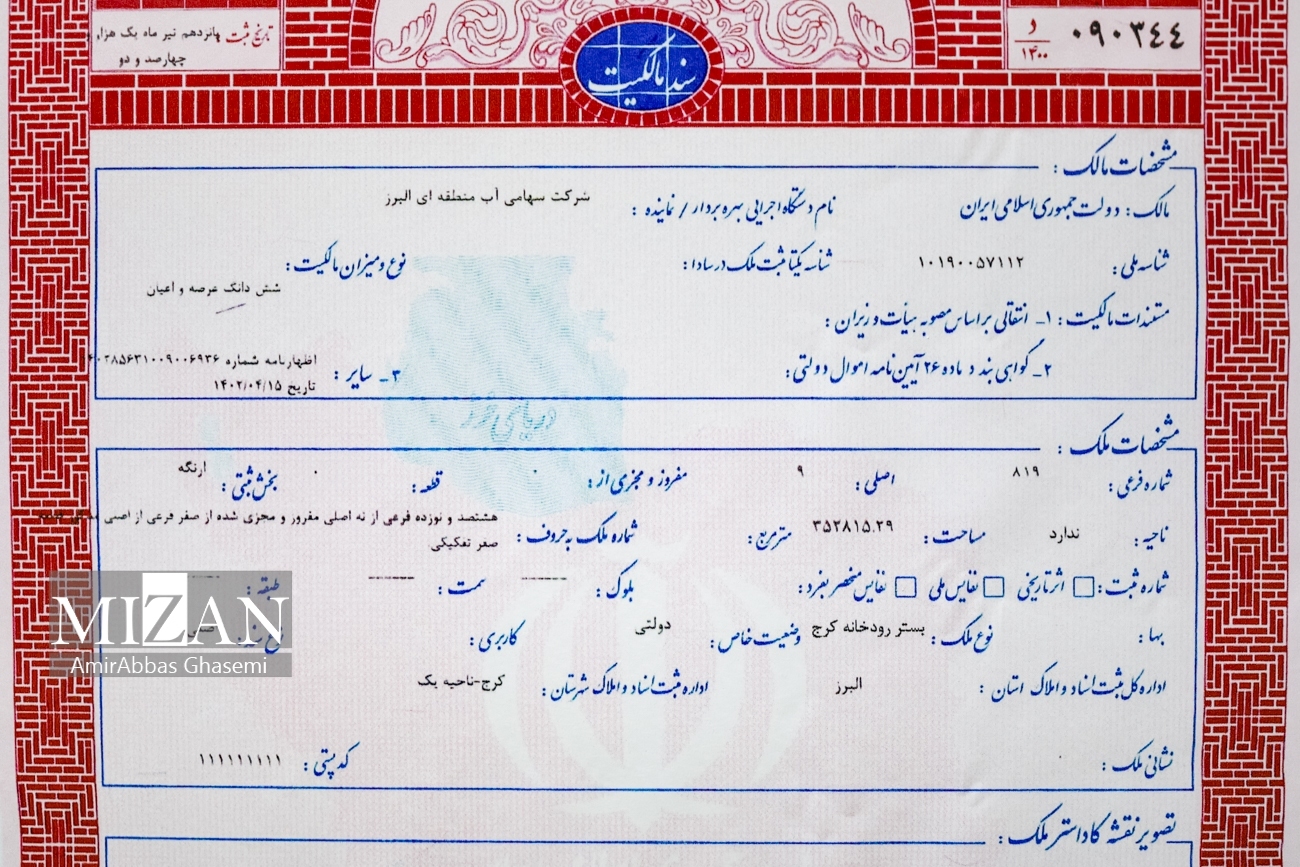 ۰۹۰۳۴۴
د
۱۴۰۰
سند مالکیت
تاریخ ثبت پانزدهم تیر ماه یک هزار و
چهارصد و دو
مشخصات مالک :
مالک : دولت جمهوری اسلامی ایران نام دستگاه اجرایی بهره بردار / نماینده : شرکت سهامی آب منطقه ای البرز
شناسه ملی : ۱۰۱۹۰۰۵۷۱۱۲ شناسه یکتا ثبت ملک در سادا : نوع و میزان مالکیت : شش دانگ عرصه و اعیان
مستندات مالکیت : ۱ـ انتقالی بر اساس مصوبه هیأت وزیران :
۲ـ گواهی بند د ماده ۲۶ آیین نامه اموال دولتی : ۳ـ سایر : اظهارنامه شماره
تاریخ ۱۴۰۲/۰۴/۱۵
دریای خزر
مشخصات ملک :
شماره فرعی : ۸۱۹ اصلی : ۹ مفروز و مجزی از : ۰ قطعه : ۰ بخش ثبتی : ارنگه
ناحیه : ندارد مساحت : ۳۵۲۸۱۵.۲۹ مترمربع : شماره ملک به حروف : هشتصد و نوزده فرعی از نه اصلی مفروز و مجزی شده از صفر فرعی از اصلی
صفر تفکیکی
شماره ثبت : اثر تاریخی نفایس ملی نفایس منحصر بفرد : بلوک : ------ سمت : ------ طبقه : ------
بها : نوع ملک : بستر رودخانه کرج وضعیت خاص : دولتی کاربری :
اداره کل ثبت اسناد و املاک استان : البرز اداره ثبت اسناد و املاک شهرستان : کرج-ناحیه یک
نشانی ملک : کد پستی : ۱۱۱۱۱۱۱۱۱۱
تصویر نقشه کاداستر ملک :
MIZAN
AmirAbbas Ghasemi